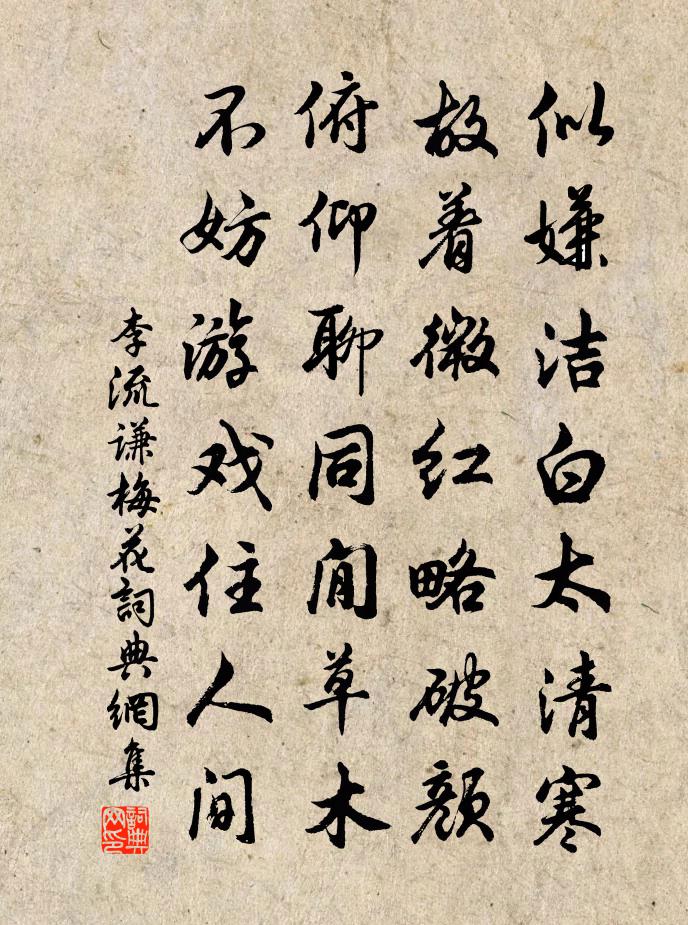 似嫌洁白太清寒
故着微红略破颜
俯仰聊同闲草木
不妨游戏住人间
李流谦梅花詞典網集
詞典网印